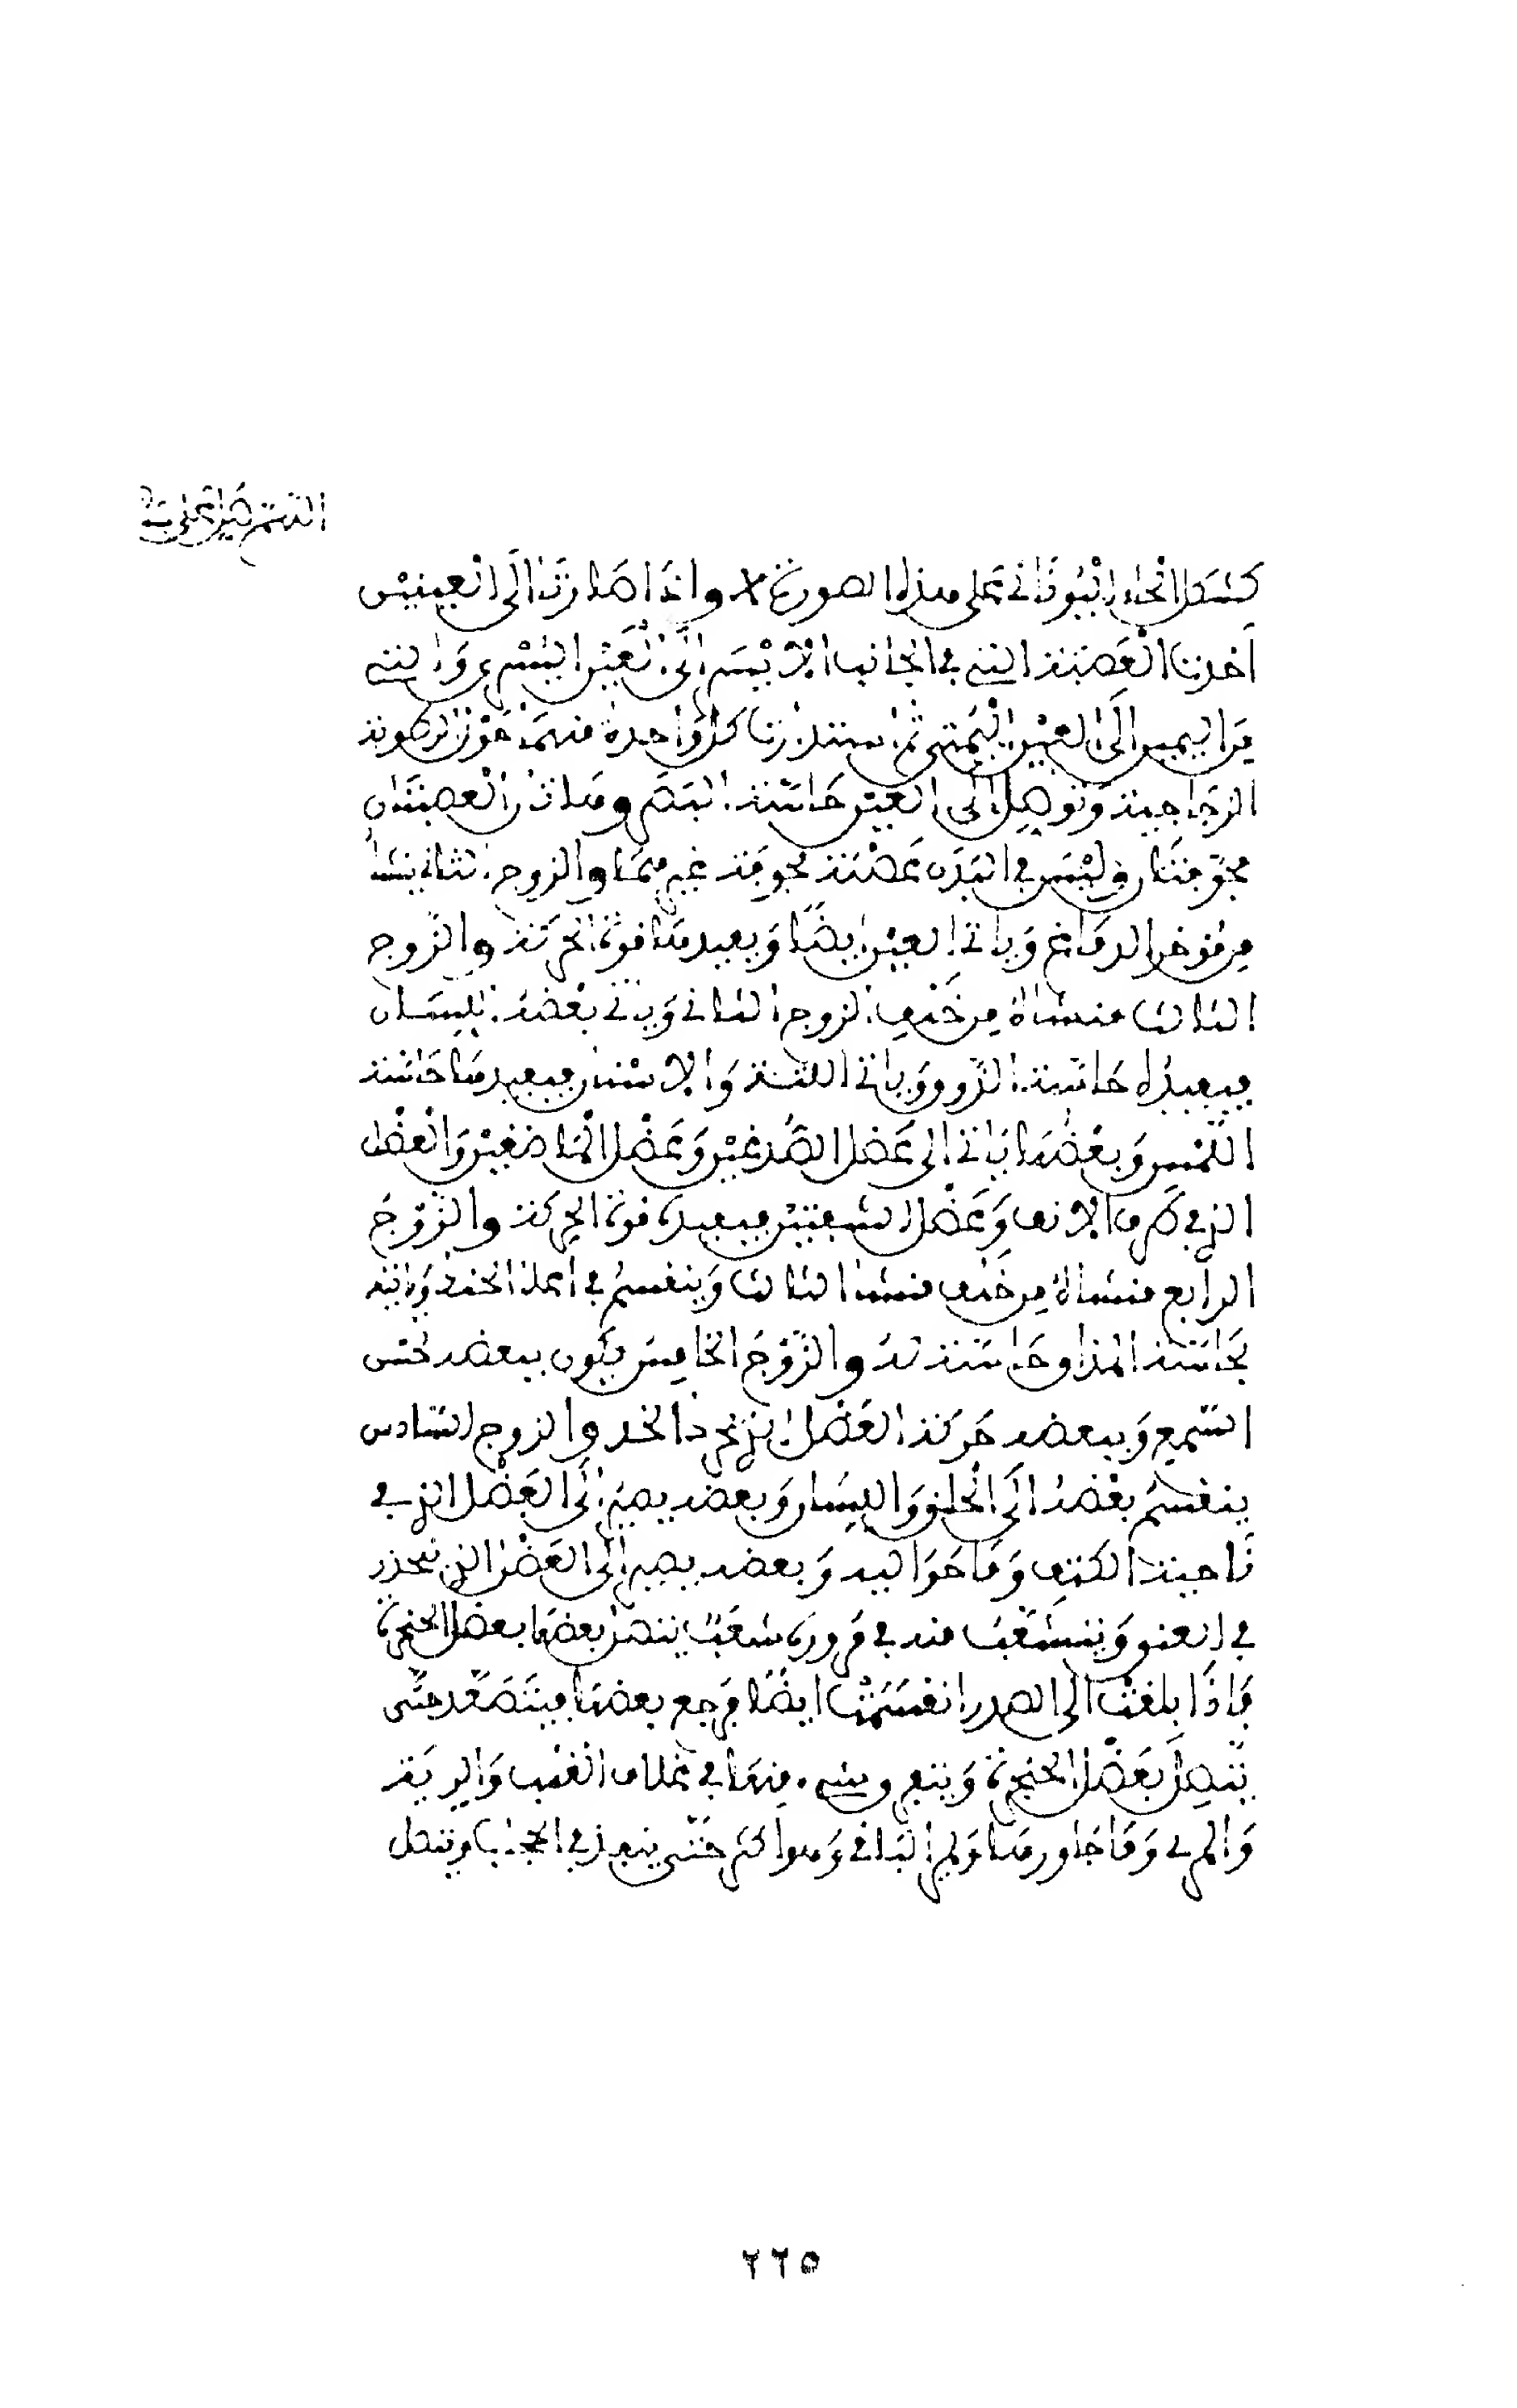 كشكل الخاء اليوناني على هذه الصورة X واذا صارتا الى العينين
اخذت العصبة التي في الجانب الايسر الى العين اليسرى والتي
من اليمين الى العين اليمنى ثم استدارت كل واحدة منهما حول الرطوبة
الزجاجية وتوصل الى العين حاسة البصر وهاتان العصبتان
مجوفتان وليس في البدن عصبة مجوفة غيرهما والزوج الثاني ينشا
من مؤخر الدماغ وياتي العين ايضا ويفيدها قوة الحركة والزوج
الثالث منشاه من خلف الزوج الثاني وياتي بعضه اللسان
فيفيده حاسة الذوق وياتي اللثة والاسنان فيفيدها حاسة
اللمس وبعضها ياتي الى عضل الصدغين وعضل الماضغين والعضل
الذي في طرف الانف وعضل الشفتين فيفيده قوة الحركة والزوج
الرابع منشاه من خلف منشا الثالث وينقسم في اعلا الحنك وياتيه
بحاسة المذاق حاسته والزوج الخامس يكون ببعضه حس
السمع وببعضه حركة العضل الذي يحرك الخد والزوج السادس
ينقسم بعضه الى الحلق واللسان وبعضه يصير الى العضل الذي في
ناحية الكتف وما حواليه وبعضه يصير الى العضل الذي ينحدر
في العنق ويتشعب منه في مروره شعب يتصل بعضها بعضل الحنجرة
فاذا بلغت الى الصدر انقسمت ايضا فرجع بعضها فيتصعد حتى
يتصل بعضل الحنجرة ويتفرق شيء منها في غلاف القلب والرية
والمري وما جاورها ويمر الباقي وهو اكثر حتى ينفذ في الحجاب ويتصل
٢٢٥